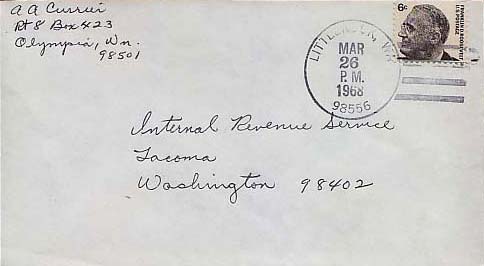 A A Currier
Rt 8 Box 423
Olympia, Wn.
98501
LITTLEROCK, WA
MAR
26
P.M.
1968
98556
6¢
FRANKLIN D. ROOSEVELT
U.S. POSTAGE
Internal Revenue Service
Tacoma
Washington 98402